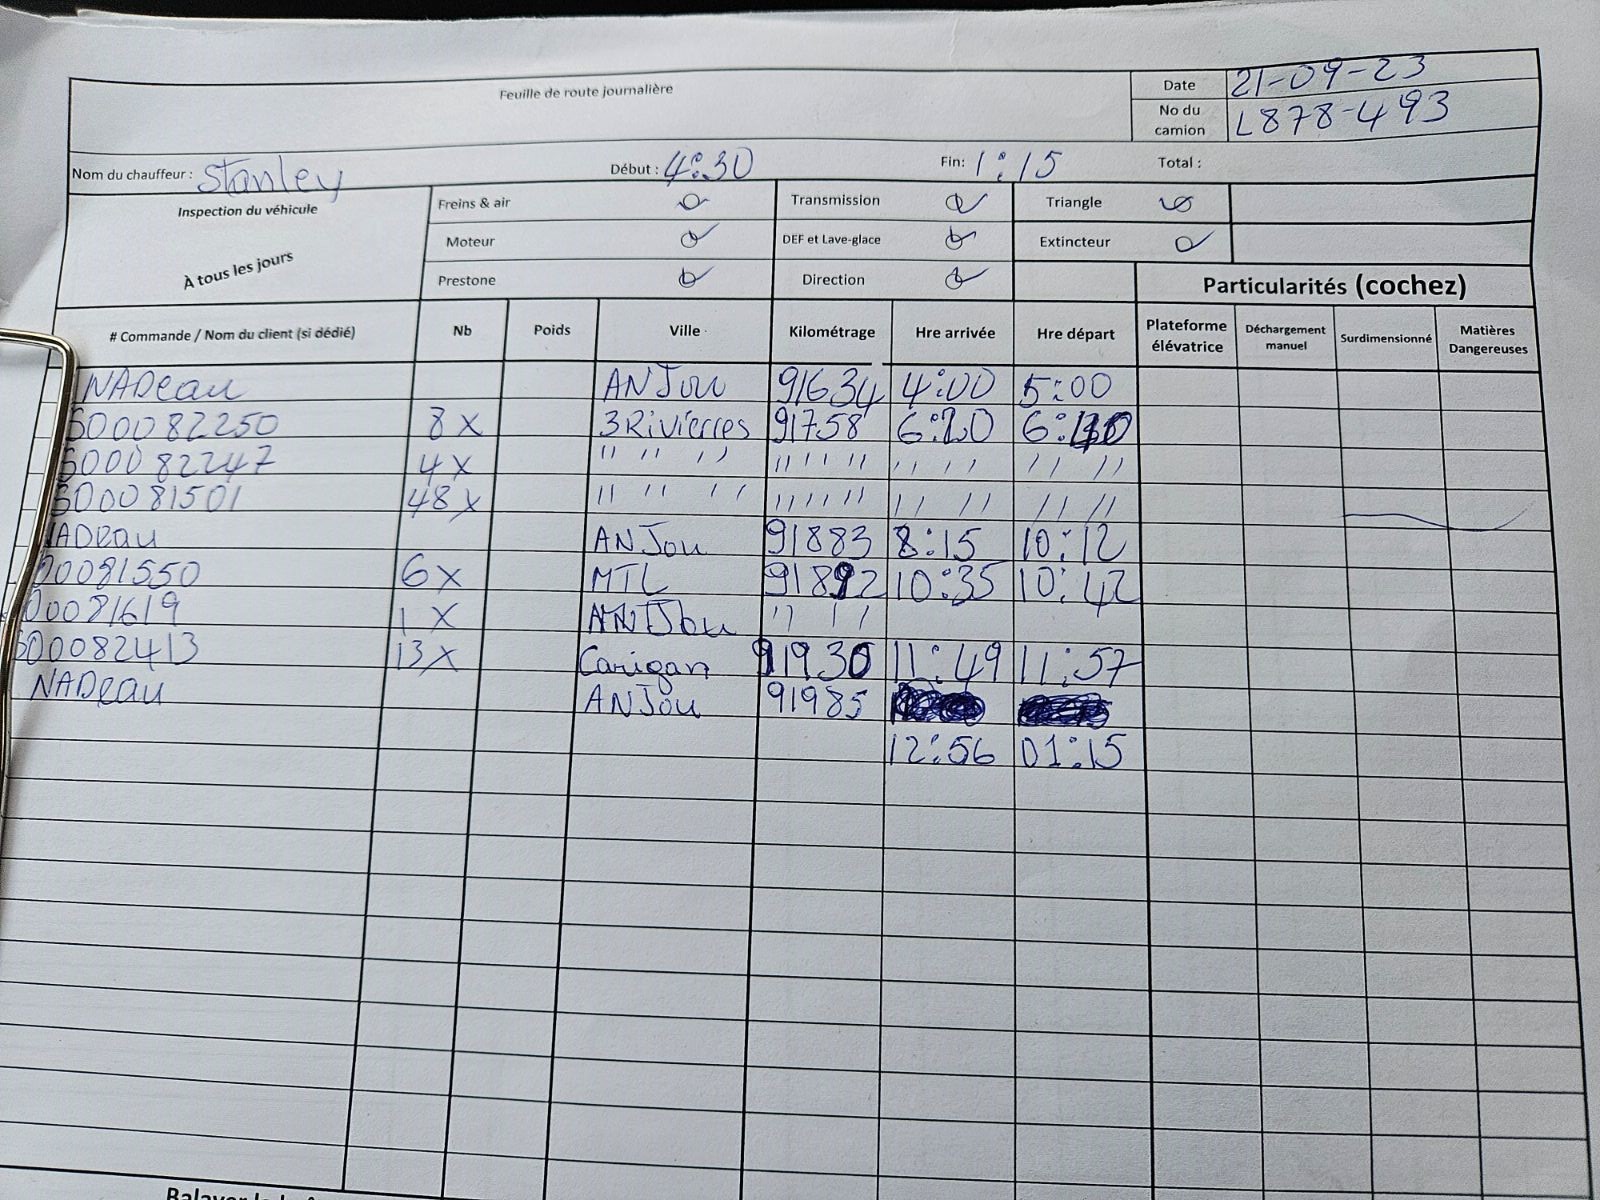 Feuille de route journalière
Date 21-09-23
No du camion L878-493
Nom du chauffeur : Stanley Début : 4:30 Fin: 1:15 Total :
Inspection du véhicule
À tous les jours
Freins & air Transmission Triangle
Moteur DEF et Lave-glace Extincteur
Prestone Direction Particularités (cochez)
# Commande / Nom du client (si dédié) Nb Poids Ville Kilométrage Hre arrivée Hre départ Plateforme élévatrice Déchargement manuel Surdimensionné Matières Dangereuses
NADeau ANJou 91634 4:00 5:00
S00082250 8x 3Rivierres 91758 6:20
S00082247 4x " " " " " " " " " "
S00081501 48x " " " " " " " " " "
NADeau ANJou 91883 8:15 10:12
00081550 6x MTL 91892 10:35 10:42
00081619 1x ANJou " "
S00082413 13x Carigan 91930 11:49 11:57
NADeau ANJou 91985
12:56 01:15